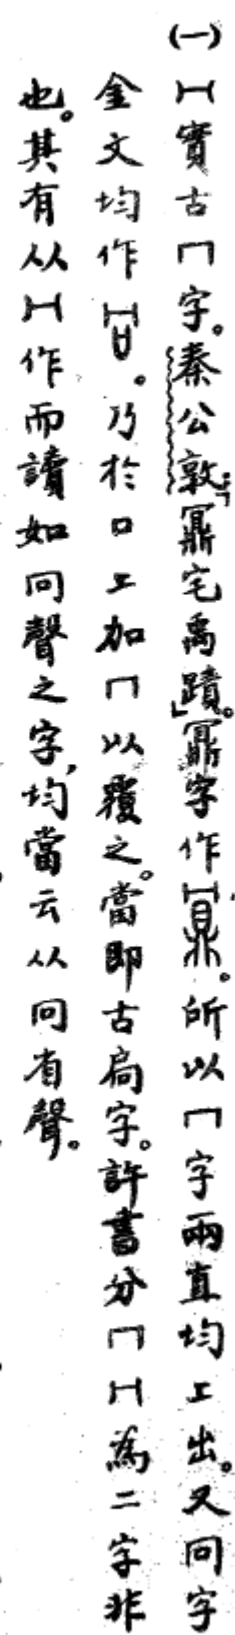 (一)
冂實古冖字。秦公敦「鼏宅禹蹟」。鼏字作。所以冖字兩直均上出。又冋字
金文均作。乃於口上加冖以覆之。當即古扃字。許書分冖冂為二字非
也。其有从冂作而讀如冋聲之字，均當云从冋省聲。